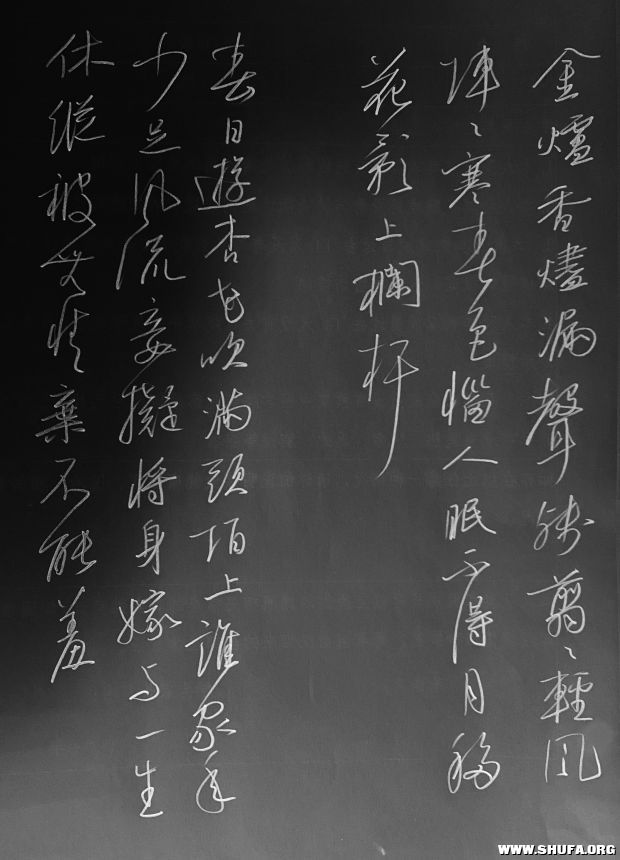 金爐香燼漏聲殘翦〻輕風
陣〻寒春色惱人眠不得月移
花影上欄杆
春日遊杏花吹滿頭陌上誰家年
少足風流妾擬將身嫁与一生
休縱被無情棄不能羞
WWW.SHUFA.ORG